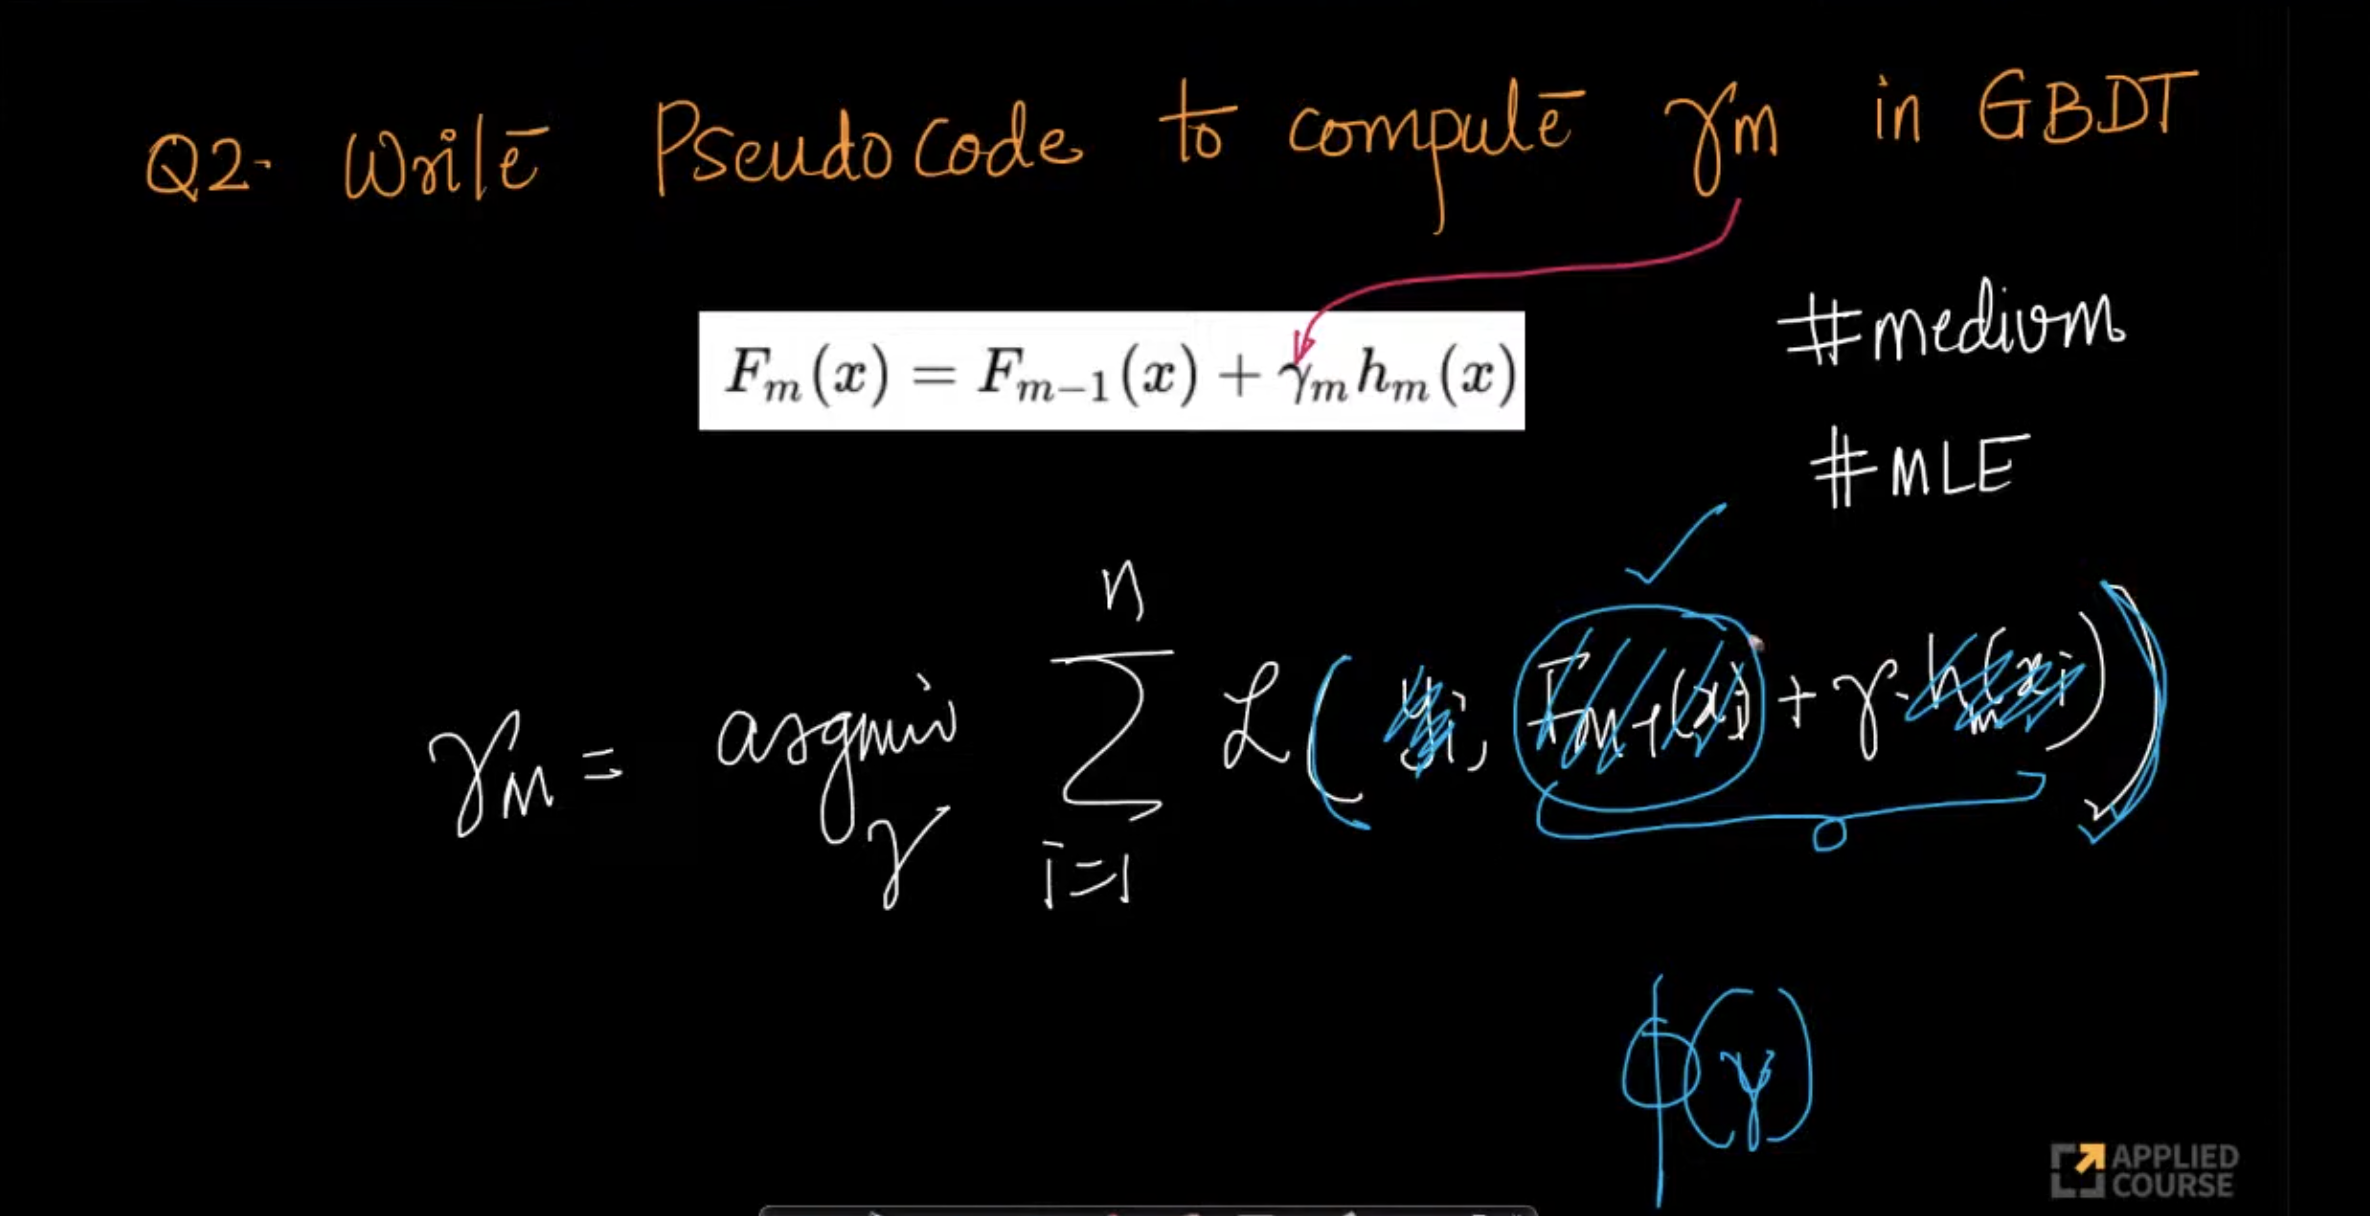 Q2. Write Pseudo Code to compute γm in GBDT
Fₘ(x) = Fₘ₋₁(x) + γₘhₘ(x)
#medium
#MLE
n
γm = argmin Σ L( yi, Fm-1(xi) + γ. hm(xi) )
γ
i=1
ϕ(γ)
APPLIED
COURSE